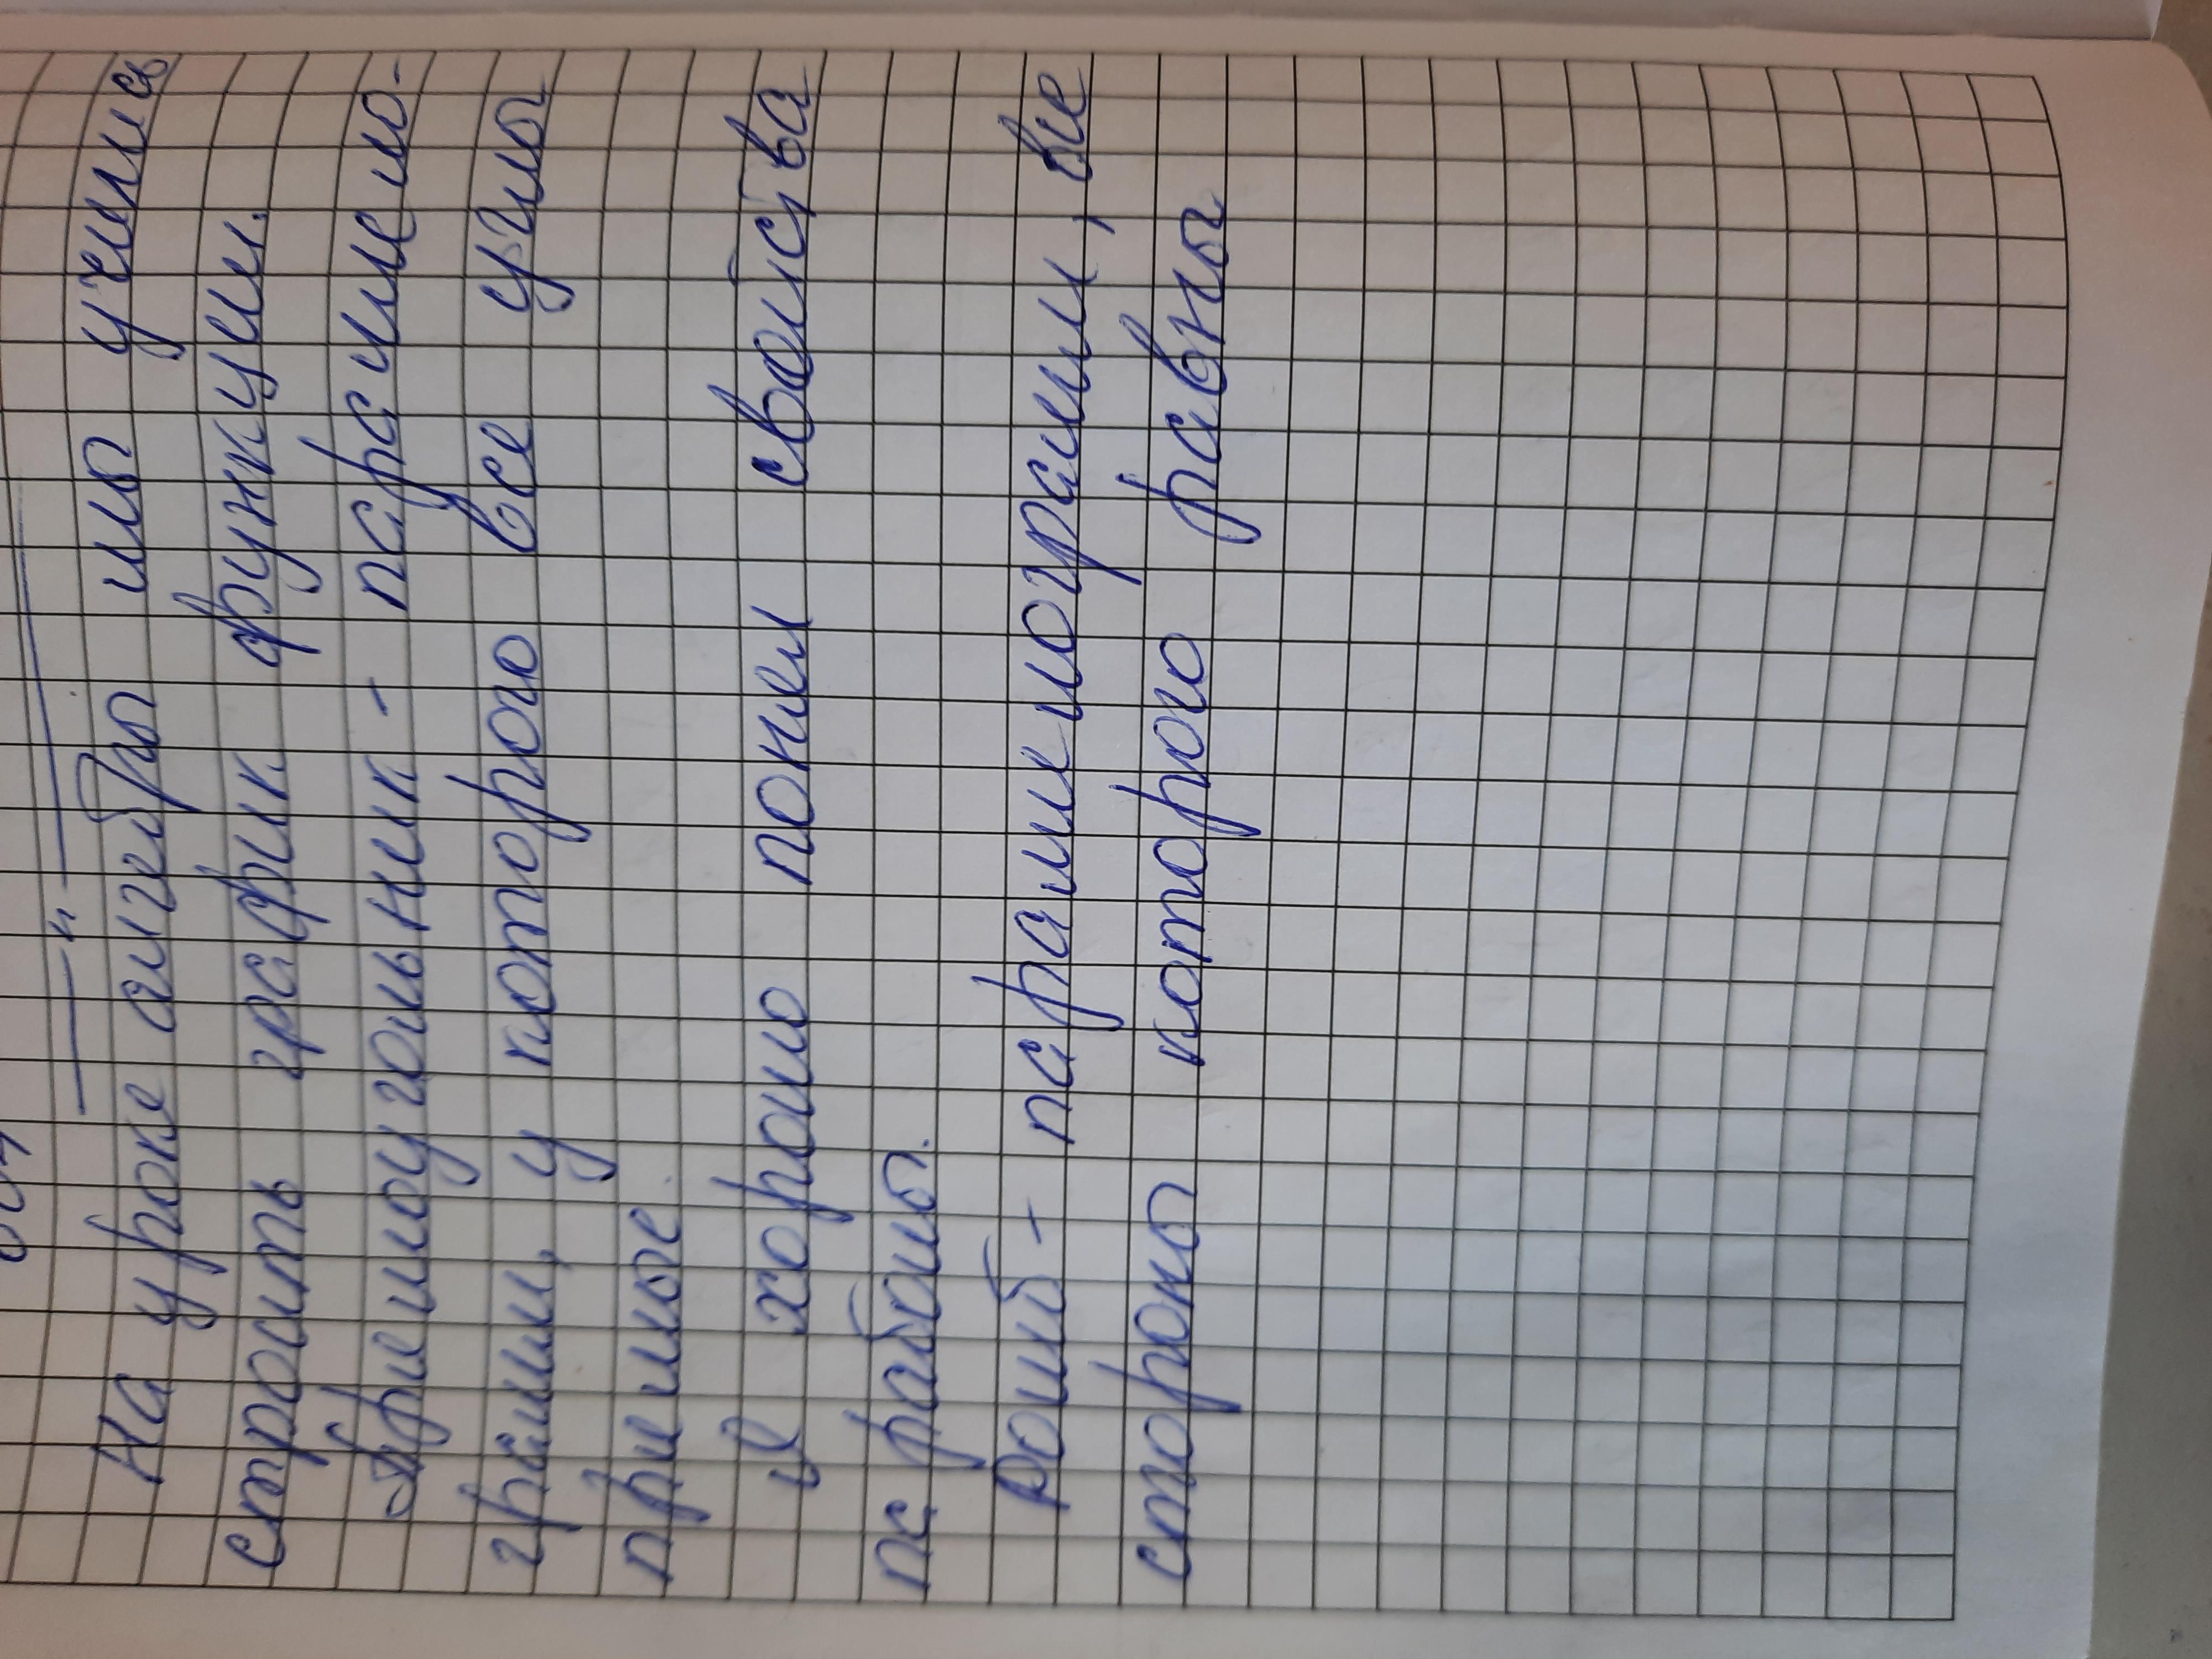 На уроке алгебры мы учились
строить график функции.
Прямоугольник - параллело-
грамм, у которого все углы
прямые.
Я хорошо понял свойства
параболы.
Ромб - параллелограмм, все
стороны которого равны